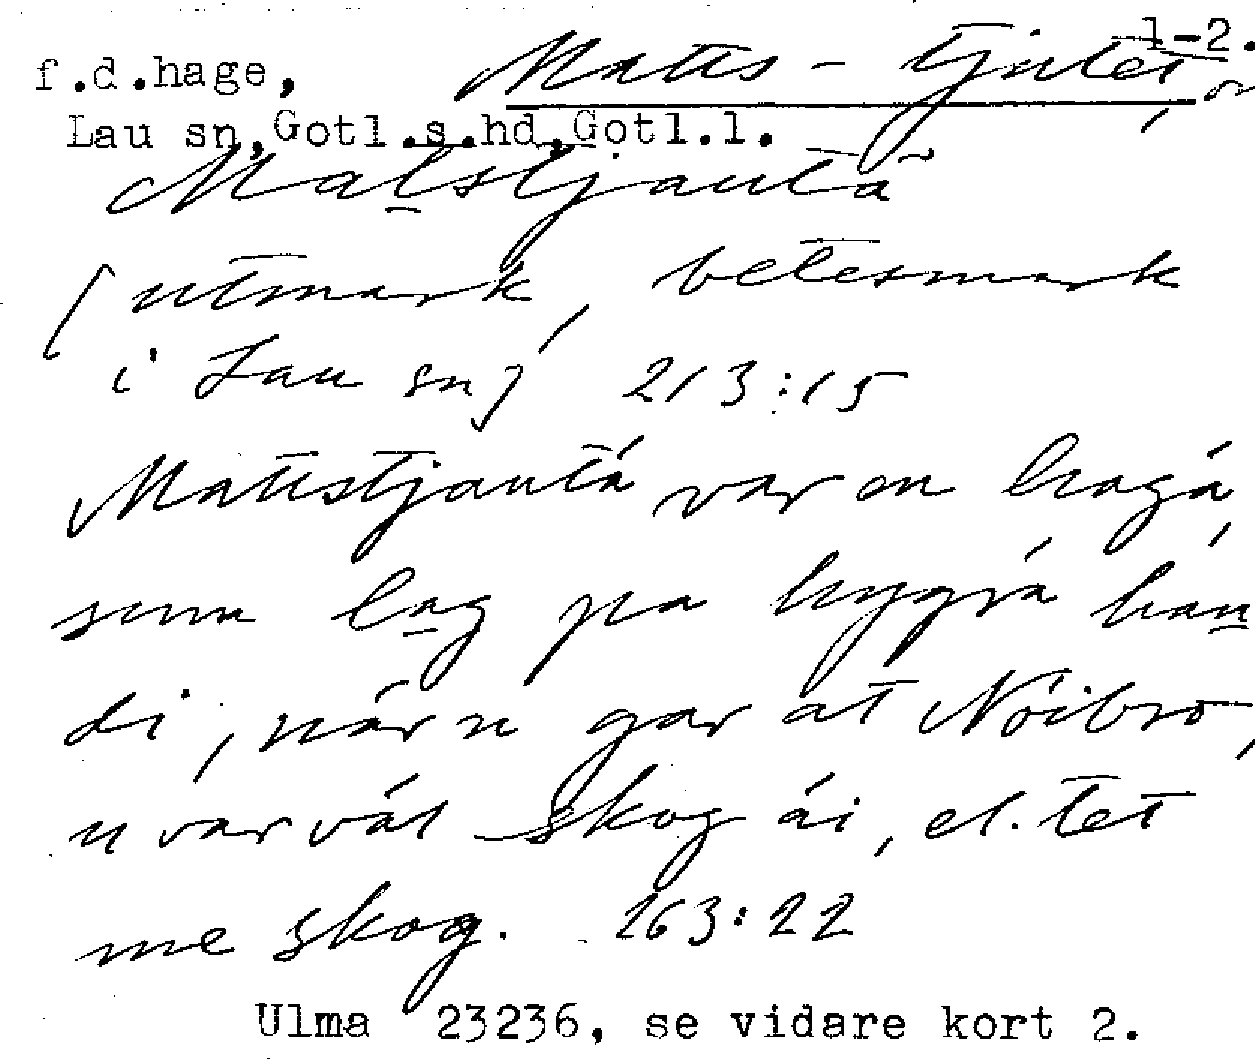 1-2.
f.d.hage, Matts-tjutet, or
Lau sn, Gotl.s.hd, Gotl.l.
Matstjautä
[utmark, betesmark
i Lau sn] 213:15
Mattstjautá var en hagá,
sum lag pa hygrá han
di, när n gar at Nóibro,
u var vál skog ái, el. tet
me skog. 263:22
Ulma 23236, se vidare kort 2.